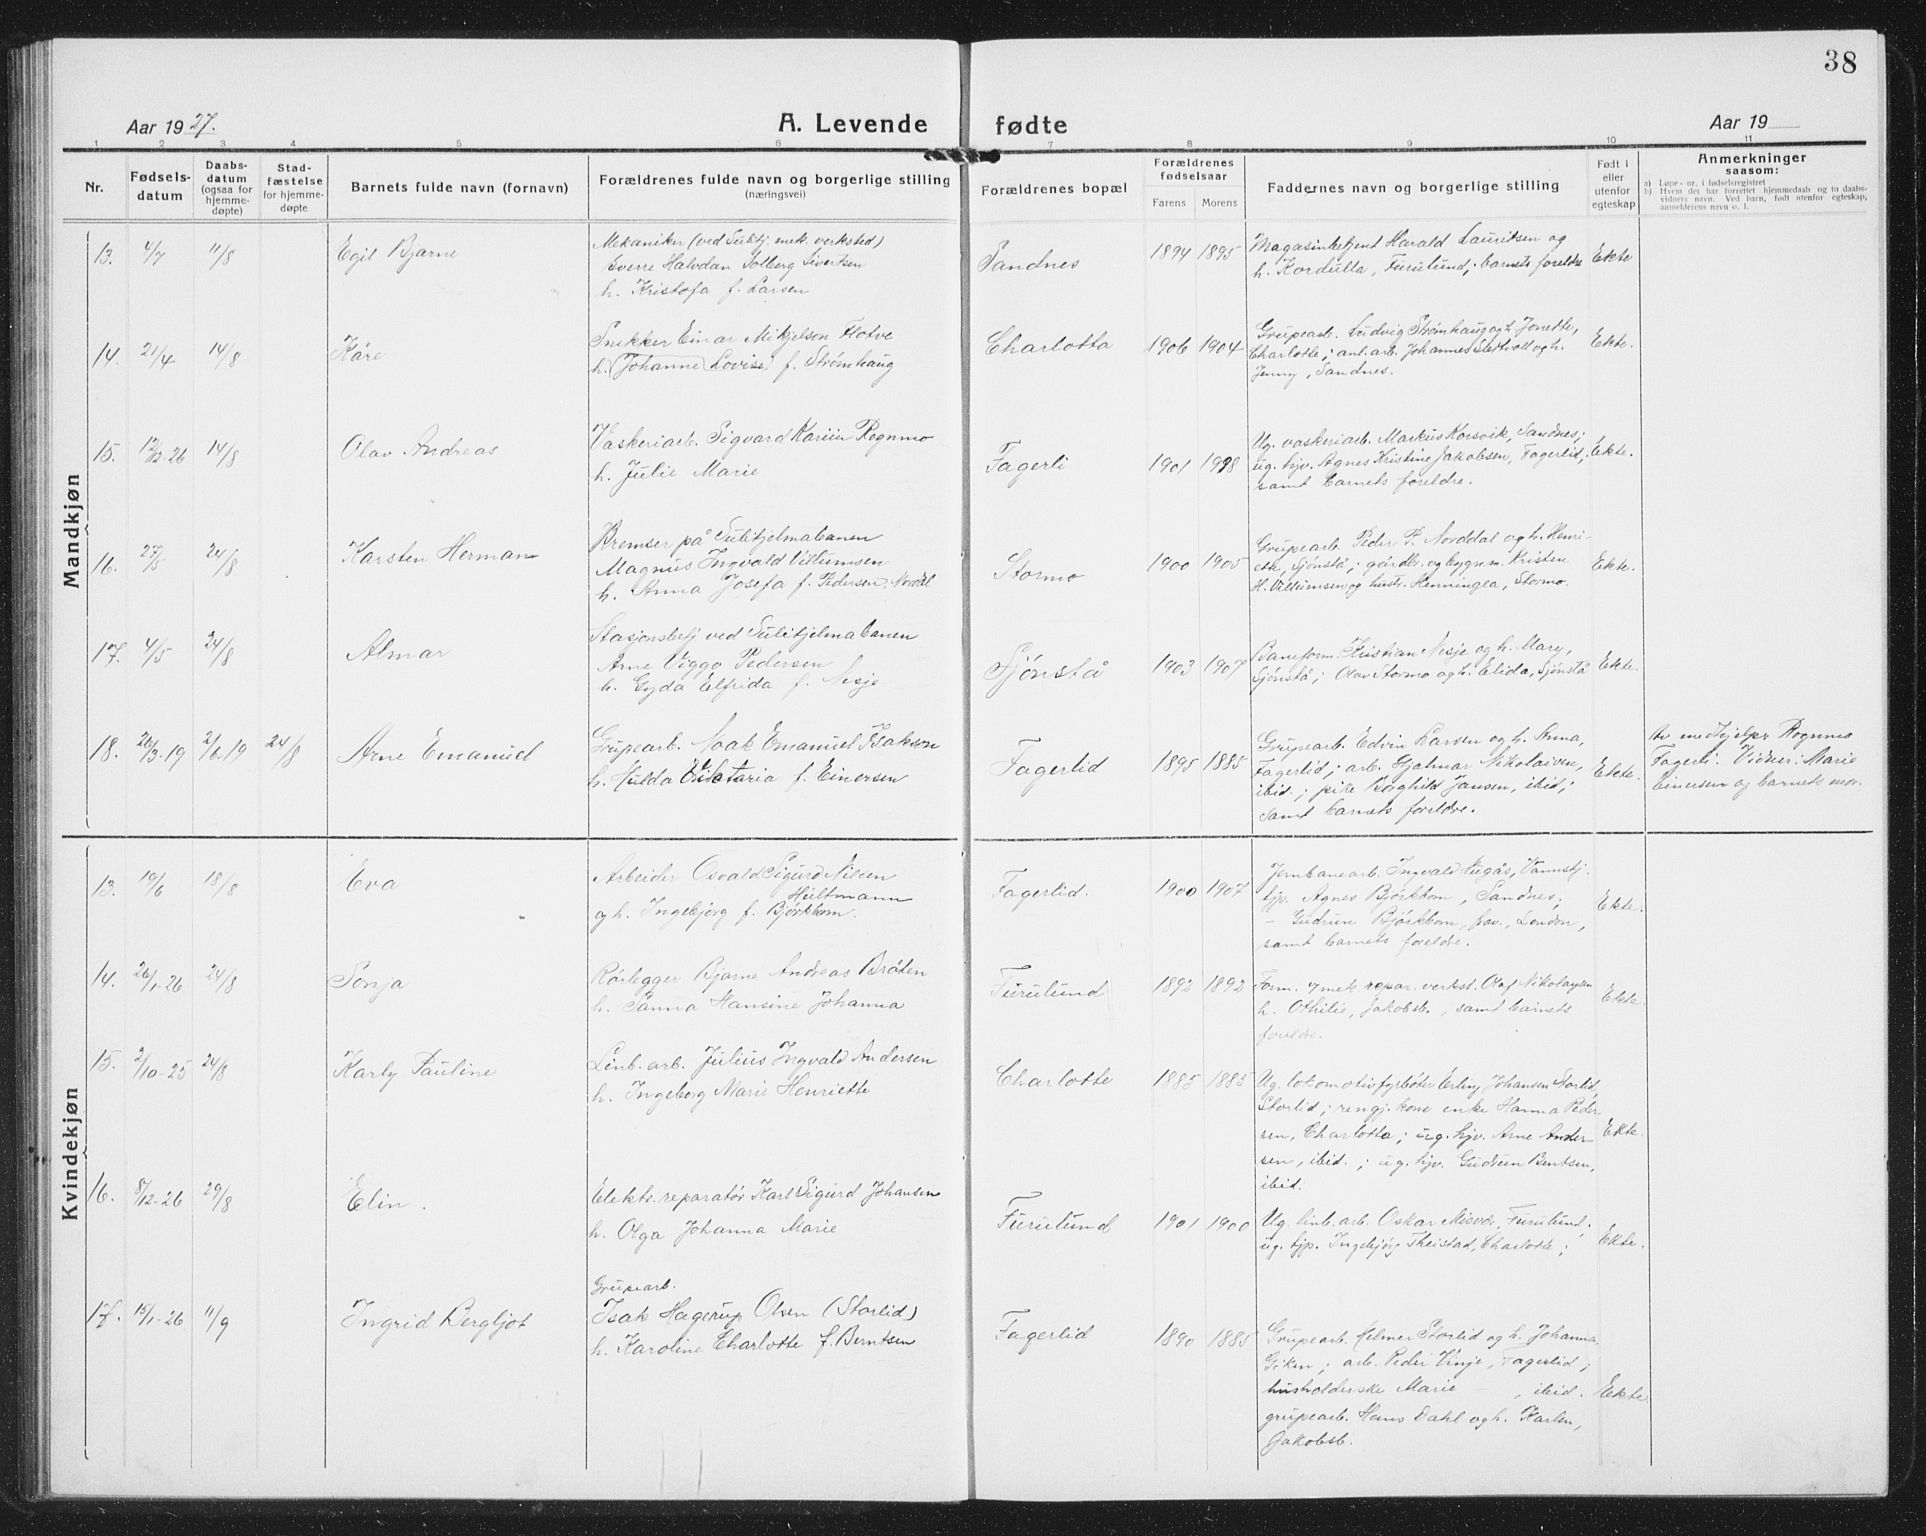 38
Aar 1927.
A. Levende fødte
Aar 19
1 2 3 4 5 6 7 8 9 10 11
Nr.
Fødsels-
datum
Daabs-
datum
(ogsaa for
hjemme-
døpte)
Stad-
fæstelse
for hjemme-
døpte
Barnets fulde navn (fornavn)
Forældrenes fulde navn og borgerlige stilling
(næringsvei)
Forældrenes bopæl
Forældrenes
fødselsaar
Farens Morens
Faddernes navn og borgerlige stilling
Født i
eller
utenfor
egteskap
Anmerkninger
saasom:
a) Løpe-nr. i fødselsregistret
b) Hvem der har forrettet hjemmedaab og to daabs-
vidners navn. Ved barn, født utenfor egteskap,
anmelderens navn o. l.
Mandkjøn
13. 4/7 11/8 Egil Bjarne
Mekaniker (ved Sulitj. mek. verksted)
Sverre Halvdan Solberg Sivertsen
h. Kristofa f. Larsen
Sandnes 1894 1895
Magasinbetjent Harald Lauritsen og
h. Kordulla, Furulund, barnets foreldre
Ekte
14. 21/4 14/8 Kåre
Snekker Einar Mikjelson Flotve
h. (Johanne Lovise) f. Strømhaug
Charlotta 1906 1904
Grupearb. Ludvig Strømhaug og h. Jonette,
Charlotte; anl. arb. Johannes Slettvoll og h.
Jenny, Sandnes.
Ekte.
15. 12/12-26 14/8 Olav Andreas
Vaskeriarb. Sigvard Rognmo
h. Julie Marie
Fagerli 1901 1998
Ug. vaskeriarb. Markus Korsvik, Sandnes;
ug. hjv. Agnes Kristine Jakobsen, Fagerlid,
samt barnets foreldre.
Ekte.
16. 27/5 24/8 Karsten Herman
Bremser på Sulitjelmabanen
Magnus Ingvald Villumsen
h. Anna Josefa f. Pedersen,
Stormo 1900 1905
Grupearb. Peder P. Norddal og h. Henri-
ette, Sjønstå; gårdbr. og bygn.m. Kristen
H. Villumsen og hustr. Henningea, Stormo.
Ekte.
17. 4/5 24/8 Almar
Stasjonsbetj ved Sulitjelmabanen
Arne Viggo Pedersen
h. Gyda Elfrida f. Nesje
Sjönstå 1903 1907
Baneform. Kristian Nesje og h. Mary,
Sjönstå; Olav Stormo og h. Elida, Sjönstå
Ekte.
18. 26/3-19 2/6-19 24/8 Arne Emanuel
Grupearb. Noak Emanuel Isakson
h. Hulda f. Einersen
Fagerlid 1895 1885
Grupearb. Edvin Larsen og h. Anna,
Fagerlid; arb. Hjalmar Nikolaisen,
ibid.; pike Borghild Jansen, ibid;
samt barnets foreldre.
Ekte.
Av medhjelper Rognmo
Fagerli. Vidner: Marie
Einersen og barnets mor.
Kvindekjøn
13. 19/6 18/8 Eva
Arbeider Osvald Sigurd Nilsen
Hultmann
og h. Ingebjørg f. Björkbom.
Fagerlid. 1900 1907
Jernbanearb. Ingvald Hugås, Vannstj.
hjp. Agnes Björkbom, Sandnes;
– Gudrun Björkbom, London,
samt barnets foreldre.
Ekte.
14. 26/1-26 24/8 Sonja
Rörlegger Bjarne Andreas Bråten
h. Sanna Hansine Johanna
Furulund 1892 1892
Form. v/ mek. repar. verkst. Olaf Nikolaysen
h. Othilie, Jakobsb., samt barnets
foreldre.
Ekte.
15. 2/10-25 24/8 Karly Pauline
Linb. arb. Julius Ingvald Andersen
h. Ingeborg Marie Henriette
Charlotte 1885 1885
Ug. lokomotivfyrbøter Erling Johansen Storlid,
Storlid; rengj. kone enke Hanna Peder
sen, Charlotta; ug. hjv. Arne Ander
sen, ibid.; ug. hjv. Gudrun Bentsen,
ibid.
Ekte
16. 8/12-26 29/8 Elin.
Elektr. reparatör Karl Sigurd Johansen
h. Olga Johanna Marie
Furulund 1901 1900
Ug. linb. arb. Oskar Misvær, Furulund;
ug. hjp. Ingebjörg Theistad, Charlotte;
Ekte.
17. 15/1-26 11/9 Ingrid Bergljot
Grupearb.
Isak Hagerup Olsen (Storlid)
h. Karoline Charlotte f. Berntsen
Fagerlid 1890 1885
Grupearb. Helmer Storlid og h. Johanna
Giken; arb. Peder Vinje, Fagerlid;
husholderske Marie –, ibid.
grupearb. Hans Dahl og h. Karlen,
Jakobsb.
Ekte